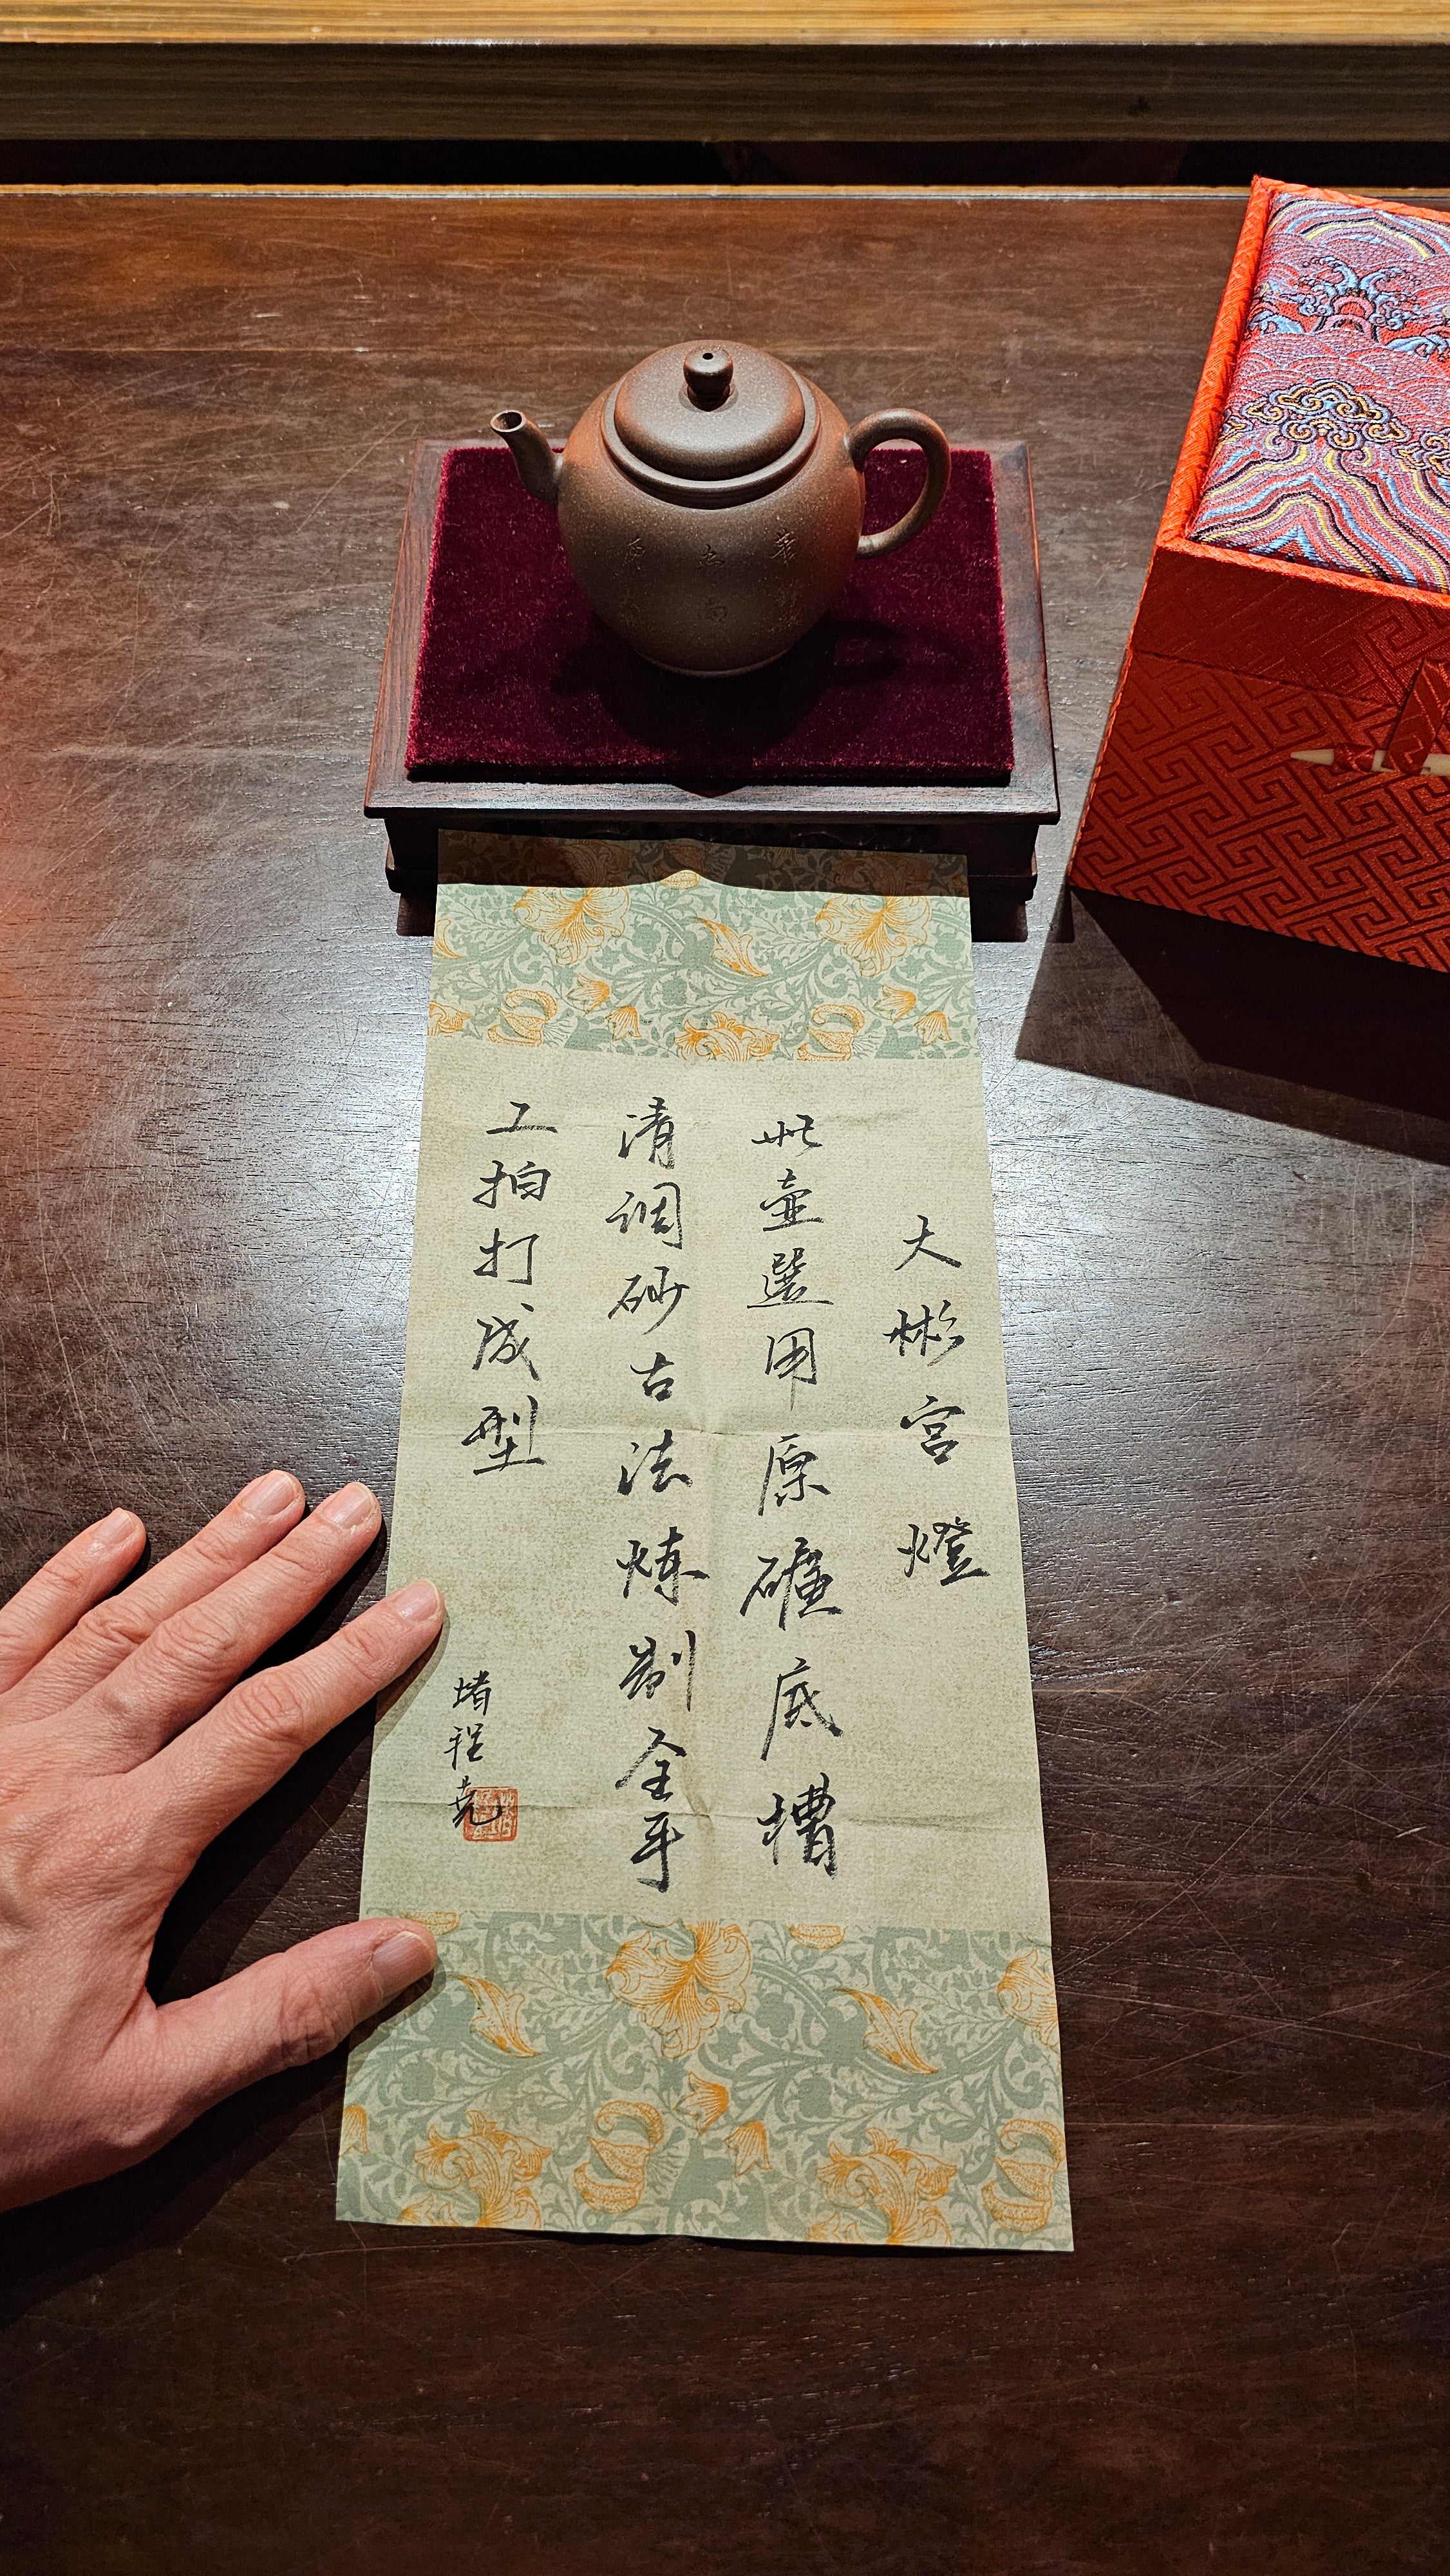 大彬宫燈
此壺選用原礦底槽
清調砂古法炼制全手
工拍打成型
堵程尧